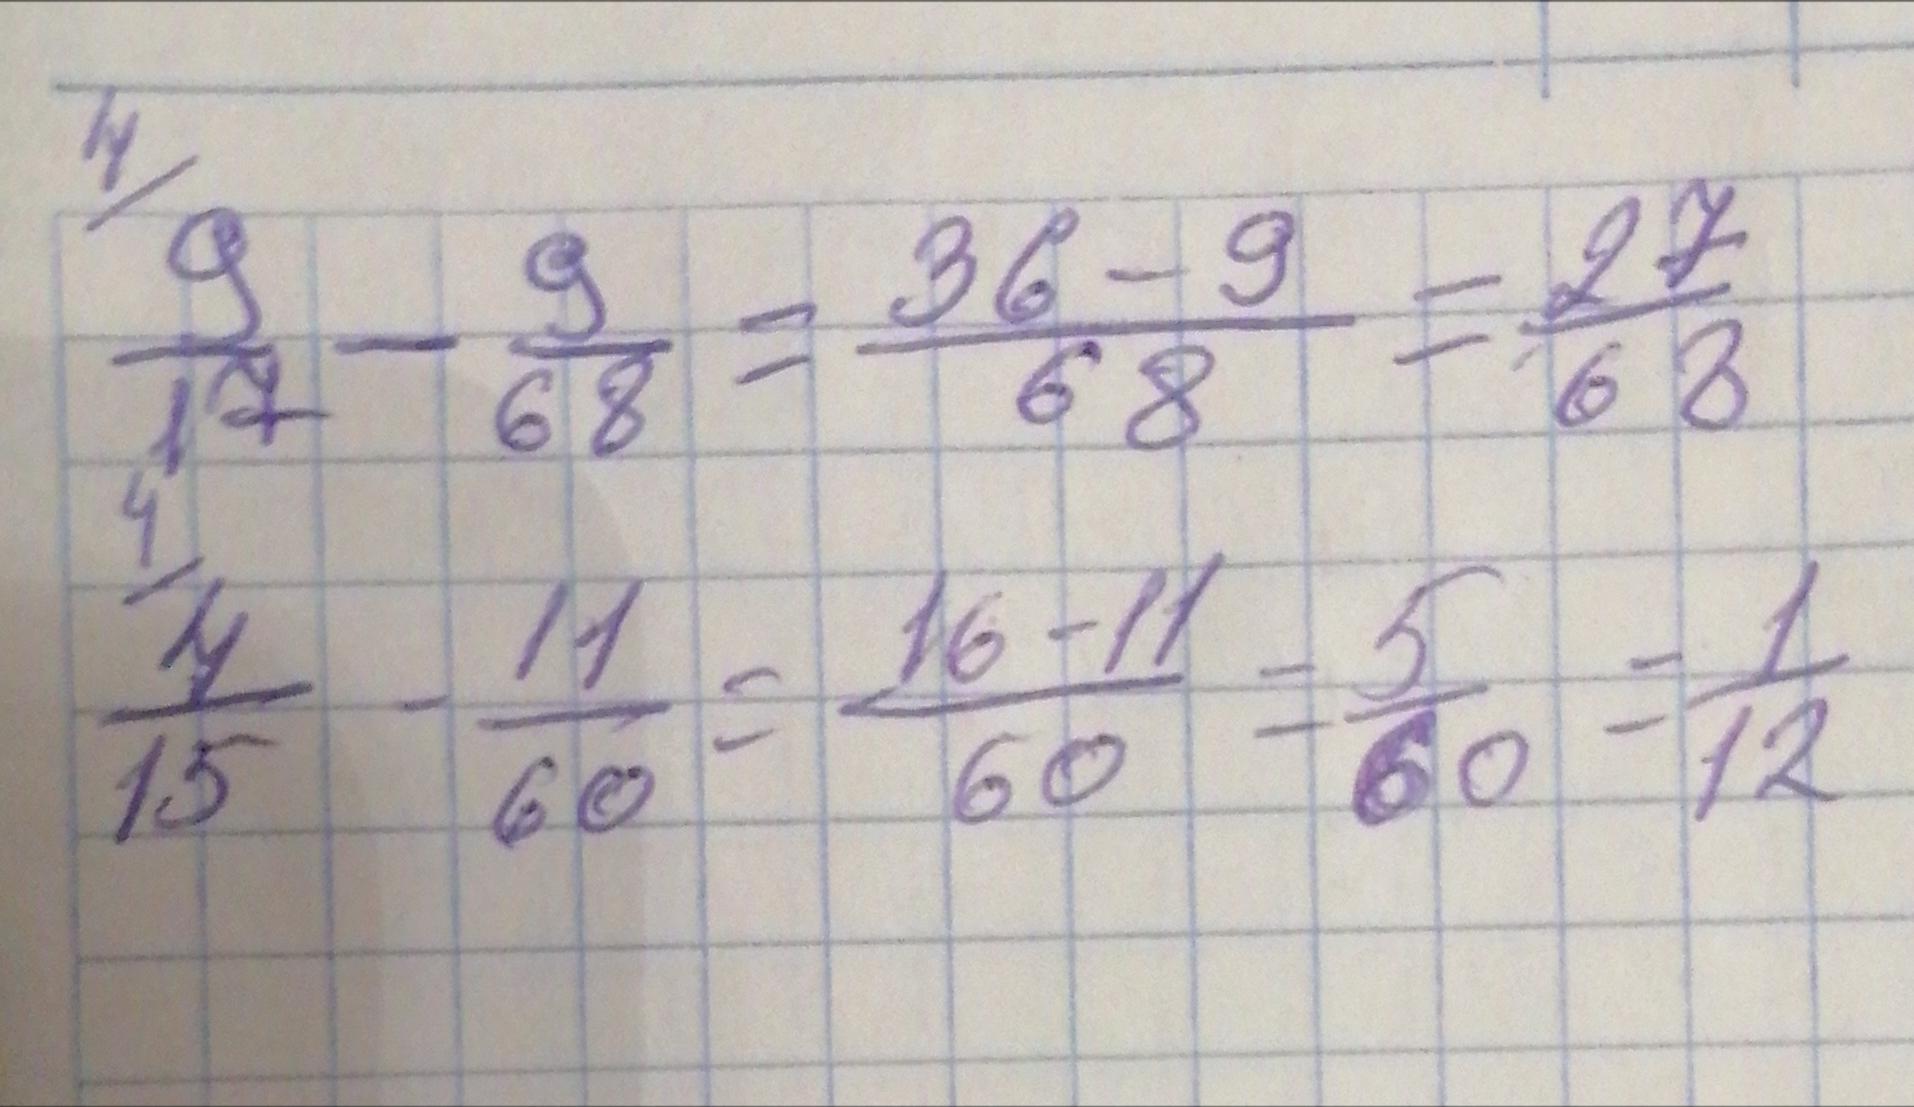 4/
9/17 - 9/68 = 36-9/68 = 27/68
4/
4/15 - 11/60 = 16-11/60 = 5/60 = 1/12